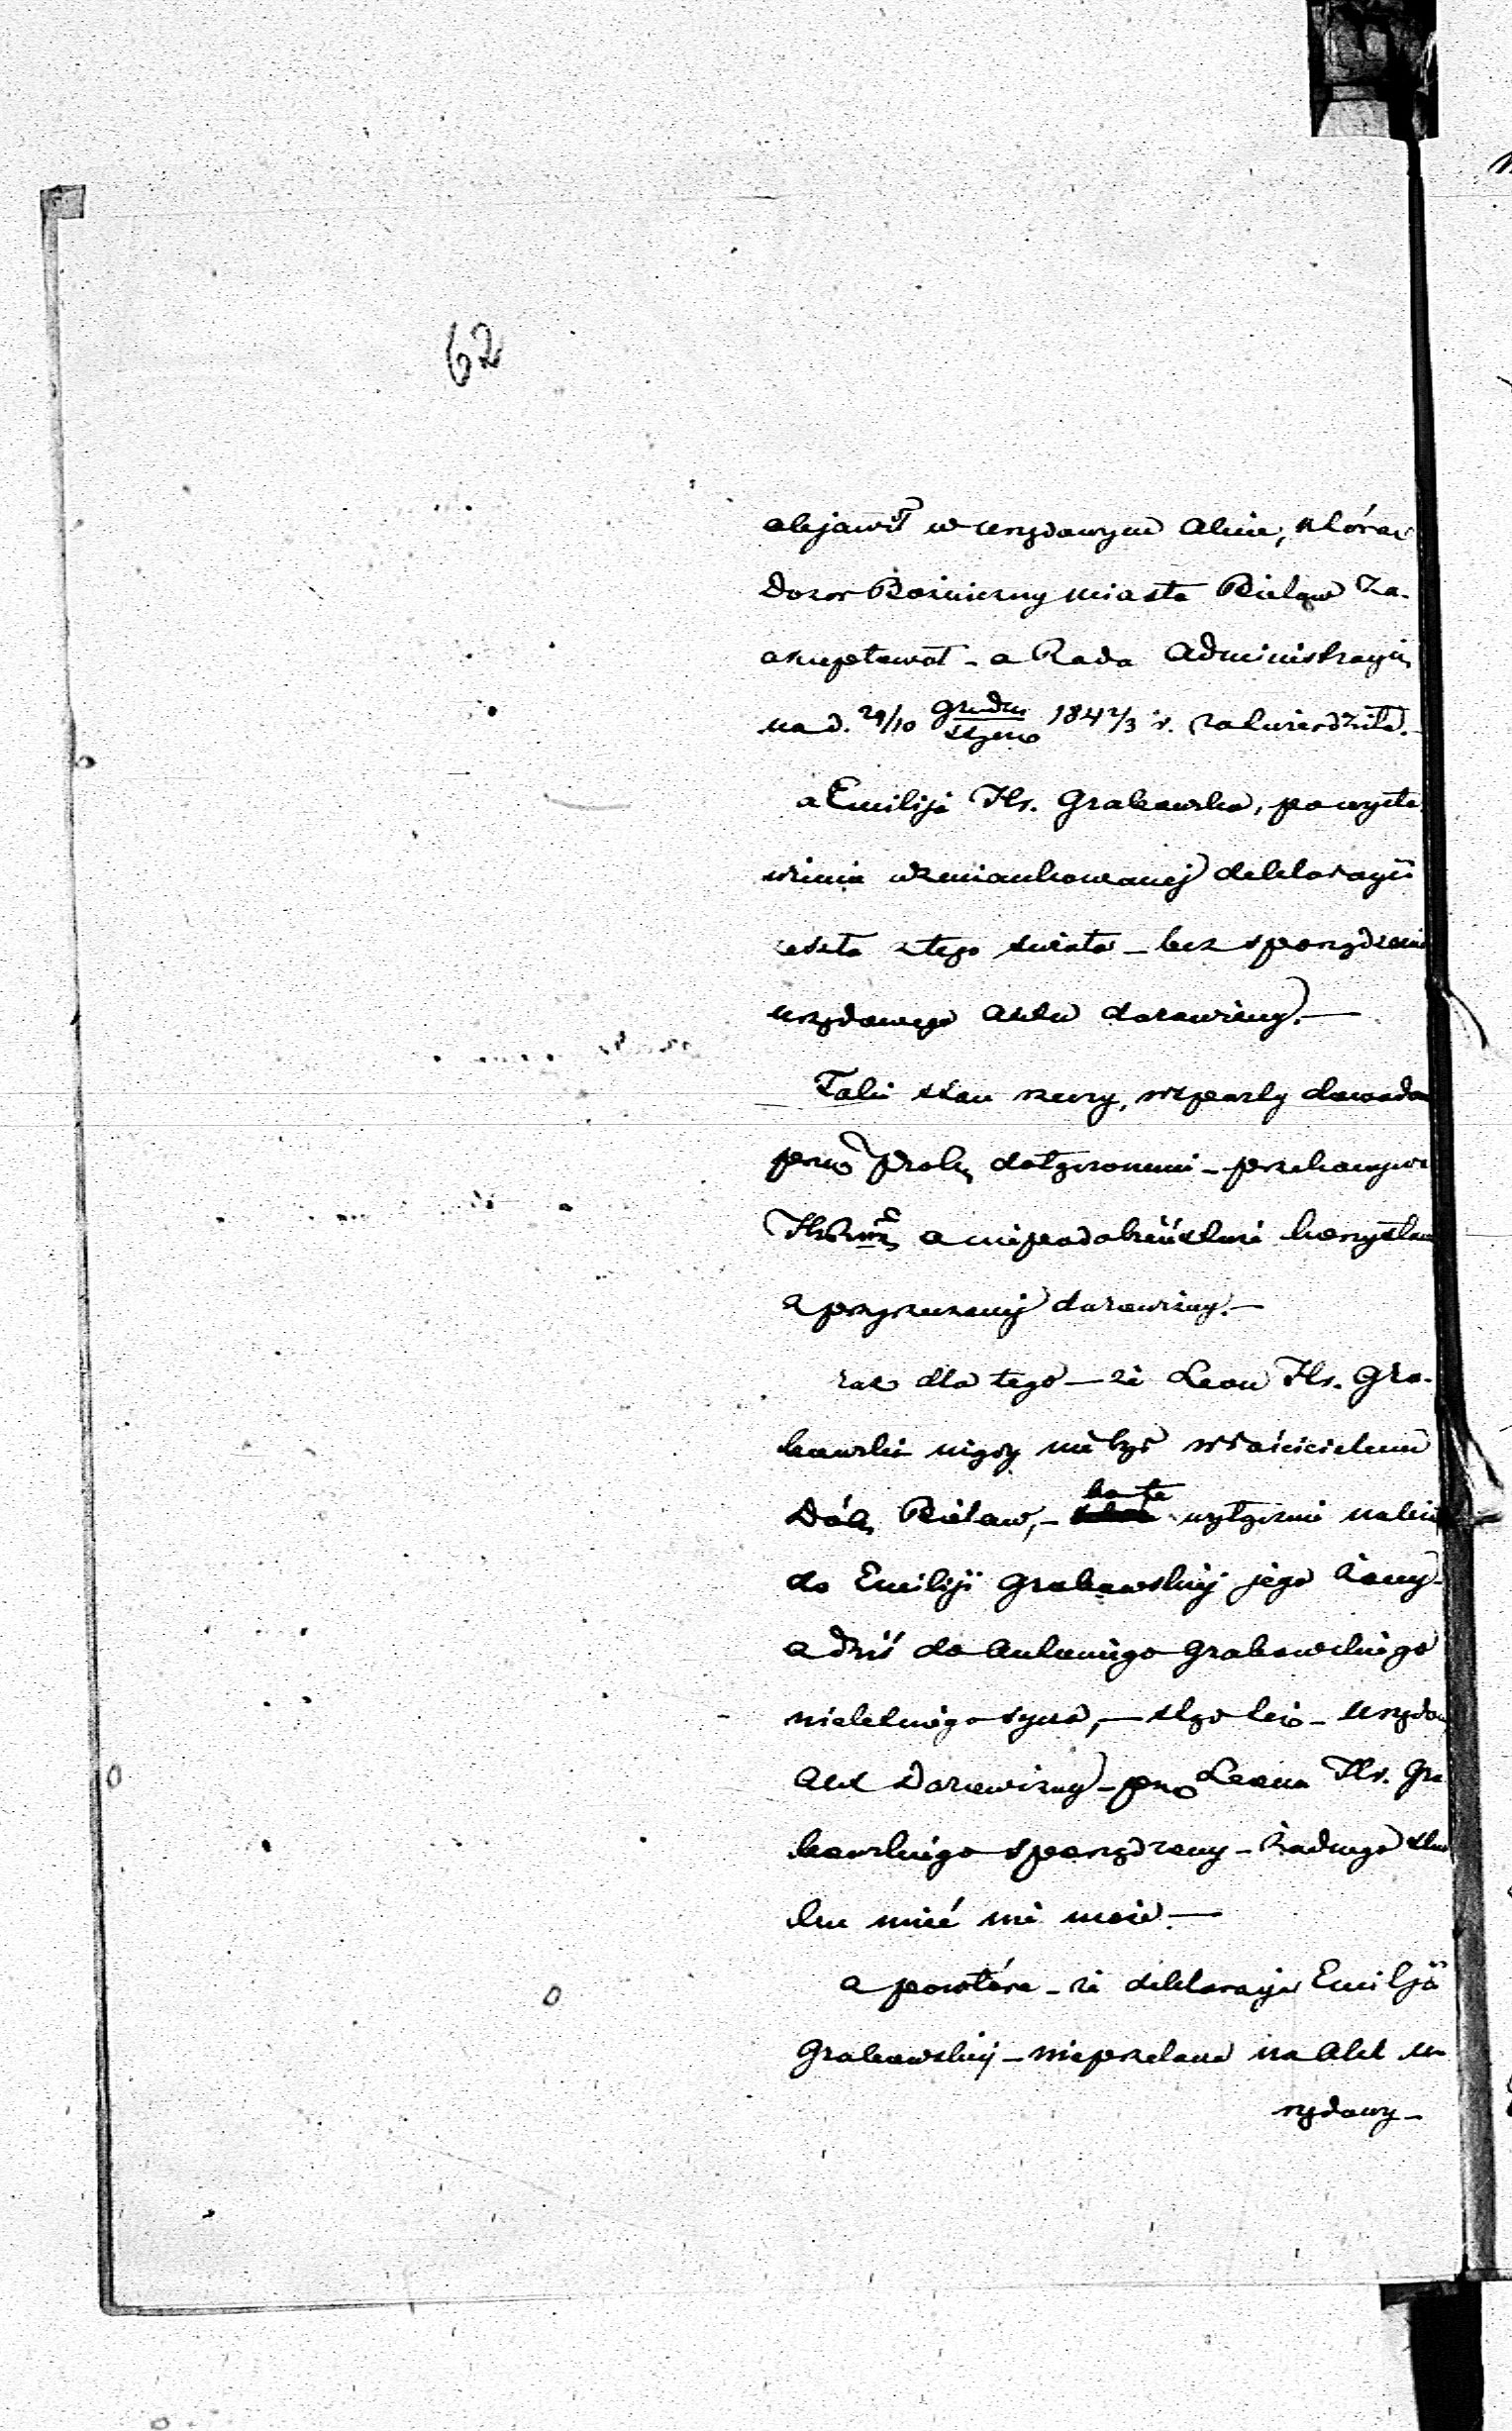 62
objawił w urzędowym akcie, którą
Dozor Bożniczny miasta Bielaw za-
akceptował - a Rada Administracyj.
na d. 29/10 Grudn/Stycz 1842/3 r. zatwierdziła.-
a Emilija Hr. Grabowska, po wysta-
wieniu wzmiankowanej deklaracyi
zeszła z tego świata - bez sporządzenia
urzędowego aktu darowizny. -
Taki stan rzeczy, wsparty dowoda
przez Prośbę dołączonemi - przekonywa
o niepodobieństwie korzystan
z przyrzeczonej darowizny. -
raz dla tego - że Leon Hr. Gra-
bowski nigdy nie był właścicielem
Dóbr Bielaw, - bo te wyłącznie należ
do Emiliji Grabowskiej jego żony -
a dziś do Antoniego Grabowskiego
nieletniego syna, - ztąd też - urzędow
akt Darowizny - przez Leona Hr. Gra
bowskiego sporządzony - żadnego sku
tku mieć nie może. -
a powtóre - że deklaracyja Emilji
Grabowskiej - nieprzelana na Akt u-
rzędowy -